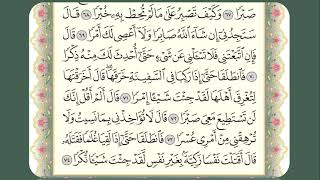 صَبْرًا ﴿٦٧﴾ وَكَيْفَ تَصْبِرُ عَلَىٰ مَا لَمْ تُحِطْ بِهِ خُبْرًا ﴿٦٨﴾ قَالَ
سَتَجِدُنِي إِنْ شَاءَ اللَّهُ صَابِرًا وَلَا أَعْصِي لَكَ أَمْرًا ﴿٦٩﴾ قَالَ
فَإِنِ اتَّبَعْتَنِي فَلَا تَسْأَلْنِي عَنْ شَيْءٍ حَتَّىٰ أُحْدِثَ لَكَ مِنْهُ ذِكْرًا
﴿٧٠﴾ فَانْطَلَقَا حَتَّىٰ إِذَا رَكِبَا فِي السَّفِينَةِ خَرَقَهَا قَالَ أَخَرَقْتَهَا
لِتُغْرِقَ أَهْلَهَا لَقَدْ جِئْتَ شَيْئًا إِمْرًا ﴿٧١﴾ قَالَ أَلَمْ أَقُلْ إِنَّكَ
لَنْ تَسْتَطِيعَ مَعِيَ صَبْرًا ﴿٧٢﴾ قَالَ لَا تُؤَاخِذْنِي بِمَا نَسِيتُ وَلَا
تُرْهِقْنِي مِنْ أَمْرِي عُسْرًا ﴿٧٣﴾ فَانْطَلَقَا حَتَّىٰ إِذَا لَقِيَا غُلَامًا فَقَتَلَهُ
قَالَ أَقَتَلْتَ نَفْسًا زَكِيَّةً بِغَيْرِ نَفْسٍ لَقَدْ جِئْتَ شَيْئًا نُكْرًا ﴿٧٤﴾